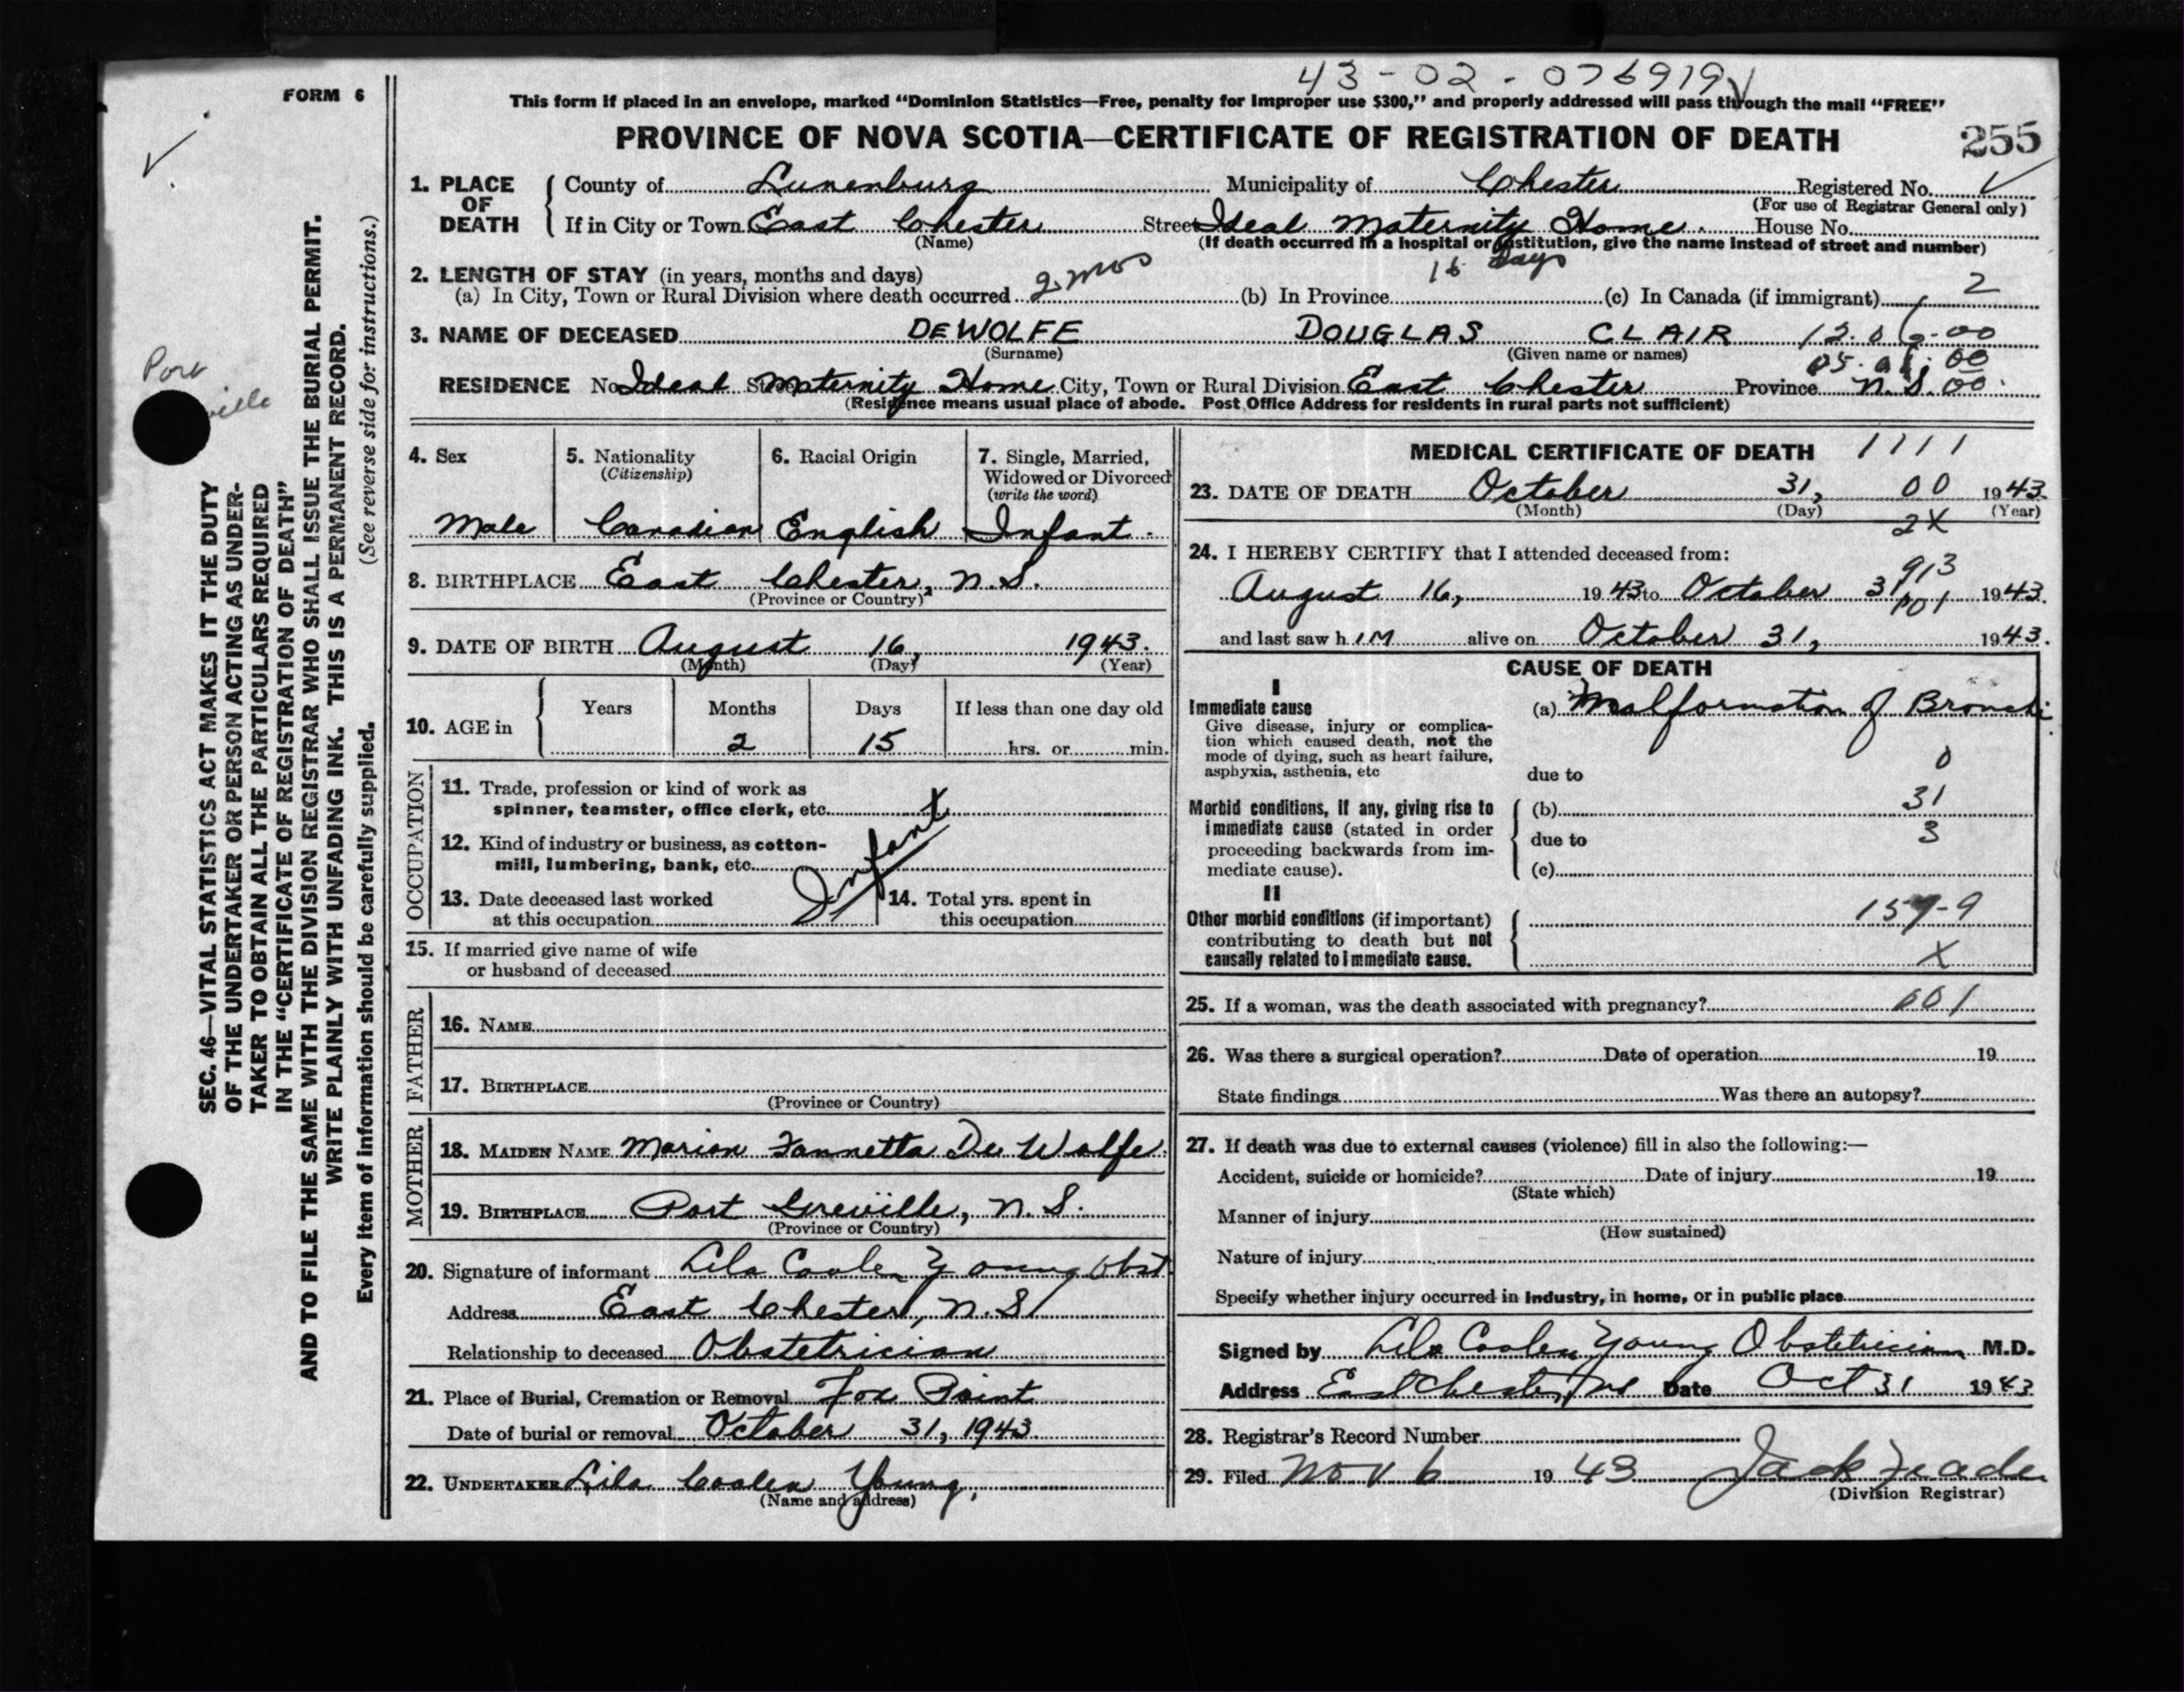 43-02-076919
FORM 6
This form if placed in an envelope, marked "Dominion Statistics—Free, penalty for improper use $300," and properly addressed will pass through the mail "FREE"
PROVINCE OF NOVA SCOTIA—CERTIFICATE OF REGISTRATION OF DEATH
255
1. PLACE OF DEATH
County of Lunenburg Municipality of Chester Registered No.
(For use of Registrar General only)
If in City or Town East Chester Street Ideal Maternity Home. House No.
(Name) (If death occurred in a hospital or institution, give the name instead of street and number)
2. LENGTH OF STAY (in years, months and days)
(a) In City, Town or Rural Division where death occurred 2 mos (b) In Province 16 days (c) In Canada (if immigrant) 2
3. NAME OF DECEASED DEWOLFE DOUGLAS CLAIR
(Surname) (Given name or names)
RESIDENCE No. Ideal St. Maternity Home City, Town or Rural Division East Chester Province N.S.
(Residence means usual place of abode. Post Office Address for residents in rural parts not sufficient)
4. Sex Male
5. Nationality (Citizenship) Canadian
6. Racial Origin English
7. Single, Married, Widowed or Divorced (write the word) Infant.
8. BIRTHPLACE East Chester, N.S.
(Province or Country)
9. DATE OF BIRTH August 16, 1943.
(Month) (Day) (Year)
10. AGE in
Years Months Days If less than one day old
2 15 hrs. or min.
OCCUPATION
11. Trade, profession or kind of work as
spinner, teamster, office clerk, etc.
12. Kind of industry or business, as cotton-
mill, lumbering, bank, etc.
Infant
13. Date deceased last worked
at this occupation
14. Total yrs. spent in
this occupation
15. If married give name of wife
or husband of deceased
FATHER
16. NAME
17. BIRTHPLACE
(Province or Country)
MOTHER
18. MAIDEN NAME Marion Fannetta De Wolfe.
19. BIRTHPLACE Port Greville, N.S.
(Province or Country)
20. Signature of informant Lila Coolen Young Obst
Address East Chester, N.S.
Relationship to deceased Obstetrician
21. Place of Burial, Cremation or Removal Fox Point
Date of burial or removal October 31, 1943.
22. UNDERTAKER Lila Coolen Young,
(Name and address)
MEDICAL CERTIFICATE OF DEATH 1711
23. DATE OF DEATH October 31, 00 1943.
(Month) (Day) (Year)
2X
24. I HEREBY CERTIFY that I attended deceased from:
913
August 16, 1943 to October 31, 1943.
101
and last saw him alive on October 31, 1943.
CAUSE OF DEATH
I
Immediate cause
Give disease, injury or complica-
tion which caused death, not the
mode of dying, such as heart failure,
asphyxia, asthenia, etc
(a) Malformation of Bronchi.
0
due to
Morbid conditions, if any, giving rise to
immediate cause (stated in order
proceeding backwards from im-
mediate cause).
(b) 31
due to 3
(c)
II
Other morbid conditions (if important)
contributing to death but not
causally related to immediate cause.
157-9
X
25. If a woman, was the death associated with pregnancy? 001
26. Was there a surgical operation? Date of operation 19
State findings Was there an autopsy?
27. If death was due to external causes (violence) fill in also the following:—
Accident, suicide or homicide? Date of injury 19
(State which)
Manner of injury
(How sustained)
Nature of injury
Specify whether injury occurred in industry, in home, or in public place
Signed by Lila Coolen Young Obstetrician M.D.
Address East Chester, NS Date Oct 31 1943
28. Registrar's Record Number
29. Filed Nov 6 1943 Jack
(Division Registrar)
SEC. 46—VITAL STATISTICS ACT MAKES IT THE DUTY
OF THE UNDERTAKER OR PERSON ACTING AS UNDER-
TAKER TO OBTAIN ALL THE PARTICULARS REQUIRED
IN THE "CERTIFICATE OF REGISTRATION OF DEATH"
AND TO FILE THE SAME WITH THE DIVISION REGISTRAR WHO SHALL ISSUE THE BURIAL PERMIT.
WRITE PLAINLY WITH UNFADING INK. THIS IS A PERMANENT RECORD.
Every item of information should be carefully supplied. (See reverse side for instructions.)
Port
ville